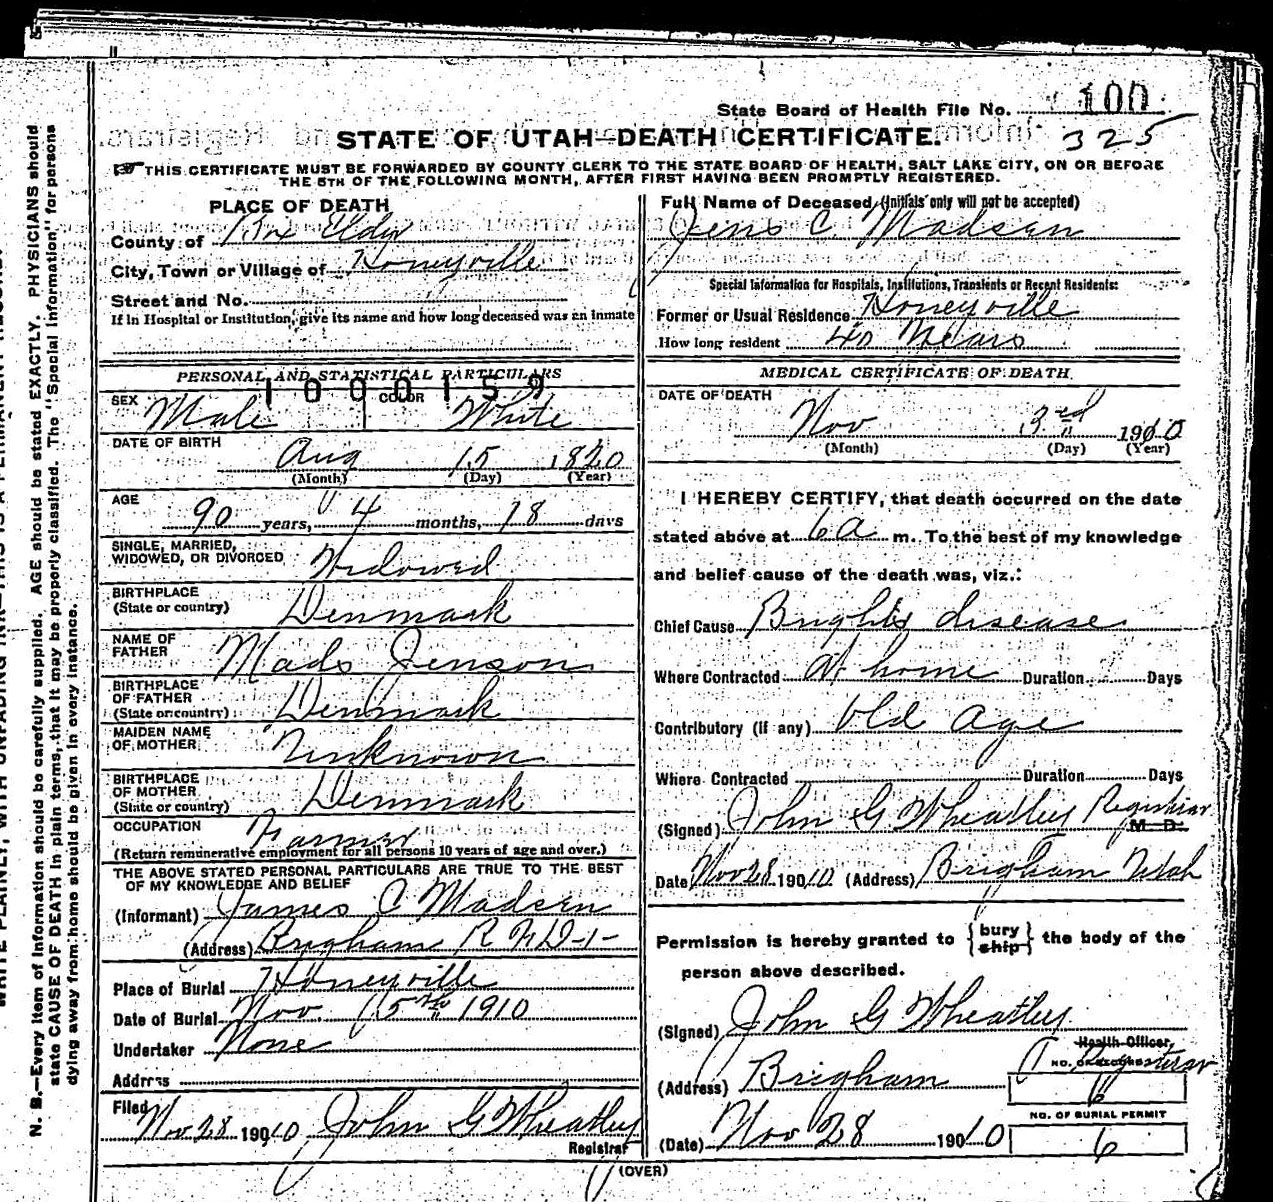 State Board of Health File No. 100
325
STATE OF UTAH—DEATH CERTIFICATE.
THIS CERTIFICATE MUST BE FORWARDED BY COUNTY CLERK TO THE STATE BOARD OF HEALTH, SALT LAKE CITY, ON OR BEFORE
THE 5TH OF THE FOLLOWING MONTH, AFTER FIRST HAVING BEEN PROMPTLY REGISTERED.
PLACE OF DEATH
County of Box Elder
City, Town or Village of Honeyville
Street and No.
If in Hospital or Institution, give its name and how long deceased was an inmate
PERSONAL AND STATISTICAL PARTICULARS
1000159
SEX Male COLOR White
DATE OF BIRTH
Aug 15 1820
(Month) (Day) (Year)
AGE
90 years, 4 months, 18 days
SINGLE, MARRIED,
WIDOWED, OR DIVORCED Widowed
BIRTHPLACE
(State or country) Denmark
NAME OF
FATHER Mads Jenson
BIRTHPLACE
OF FATHER
(State or country) Denmark
MAIDEN NAME
OF MOTHER Unknown
BIRTHPLACE
OF MOTHER
(State or country) Denmark
OCCUPATION Farmer
(Return remunerative employment for all persons 10 years of age and over.)
THE ABOVE STATED PERSONAL PARTICULARS ARE TRUE TO THE BEST
OF MY KNOWLEDGE AND BELIEF
(Informant) James C Madsen
(Address) Brigham R F D-1-
Place of Burial Honeyville
Date of Burial Nov. 5th 1910
Undertaker None
Address
Filed Nov 28 1910 John G Wheatley
Registrar
Full Name of Deceased (Initials only will not be accepted)
Jens C Madsen
Special Information for Hospitals, Institutions, Transients or Recent Residents:
Former or Usual Residence Honeyville
How long resident 40 Years
MEDICAL CERTIFICATE OF DEATH
DATE OF DEATH
Nov 3rd 1910
(Month) (Day) (Year)
I HEREBY CERTIFY, that death occurred on the date
stated above at 6 a m. To the best of my knowledge
and belief cause of the death was, viz.:
Chief Cause Brights disease
Where Contracted at home Duration Days
Contributory (if any) Old Age
Where Contracted Duration Days
(Signed) John G Wheatley Registrar
M D.
Date Nov 28 1910 (Address) Brigham Utah
Permission is hereby granted to {bury
ship} the body of the
person above described.
(Signed) John G Wheatley
Health Officer,
Registrar
(Address) Brigham 6
NO. OF BURIAL PERMIT
(Date) Nov 28 1910 6
(OVER)
N. B.—Every item of information should be carefully supplied. AGE should be stated EXACTLY. PHYSICIANS should
state CAUSE OF DEATH in plain terms, that it may be properly classified. The "Special Information" for persons
dying away from home should be given in every instance.